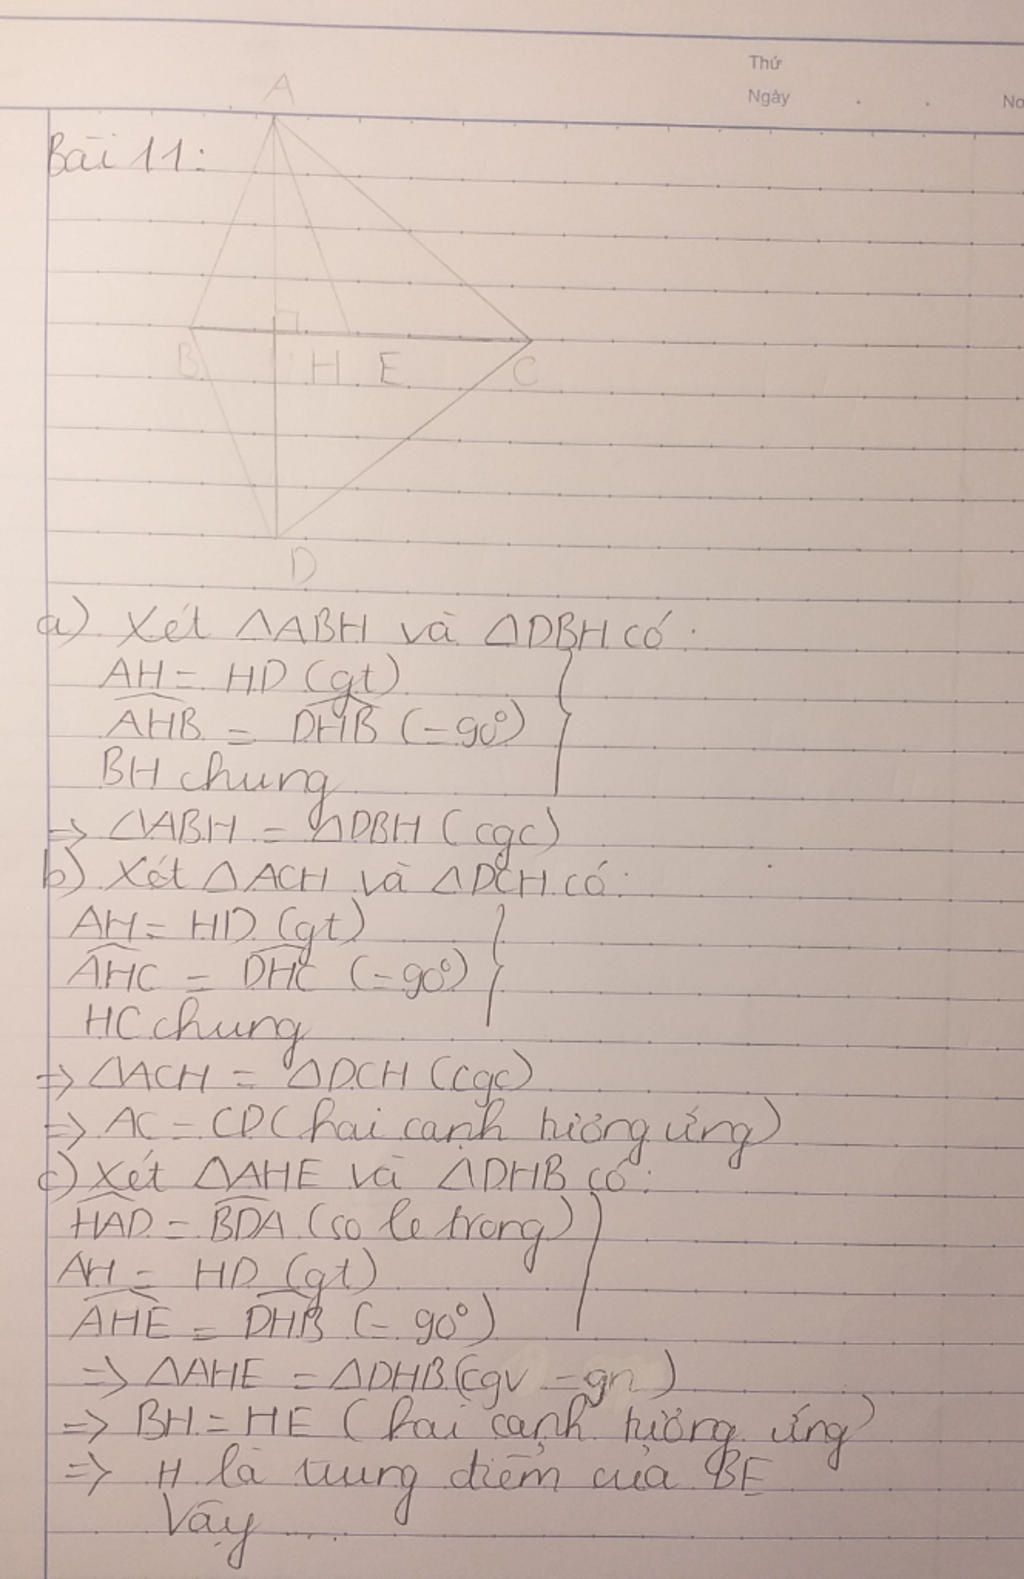 Thứ
Ngày
No
A
Bài 11:
B H E C
D
a) Xét △ABH và △DBH có:
AH = HD (gt)
AHB = DHB (= 90°)
BH chung
=> △ABH = △DBH (cgc)
b) Xét △ACH và △DCH có:
AH = HD (gt)
AHC = DHC (= 90°)
HC chung
=> △ACH = △DCH (cgc)
=> AC = CD (hai cạnh tương ứng)
c) Xét △AHE và △DHB có:
HAD = BDA (so le trong)
AH = HD (gt)
AHE = DHB (= 90°)
=> △AHE = △DHB (cgv - gn)
=> BH = HE (hai cạnh tương ứng)
=> H là trung điểm của BE
Vậy ....